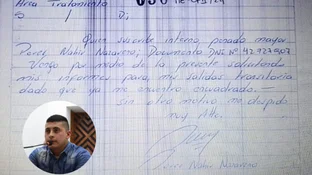 Area Tratamiento
S / D;
Quien suscribe interno penado mayor.
Perez Nahir Navareno; Documento DNI Nº 42.927.907
Vengo por medio de la presente solicitando
mis informes para mis salidas transitoria
dado que ya me encuentro encuadrado.—
Sin otro motivo me despido
muy Atte.
Nahir Navareno